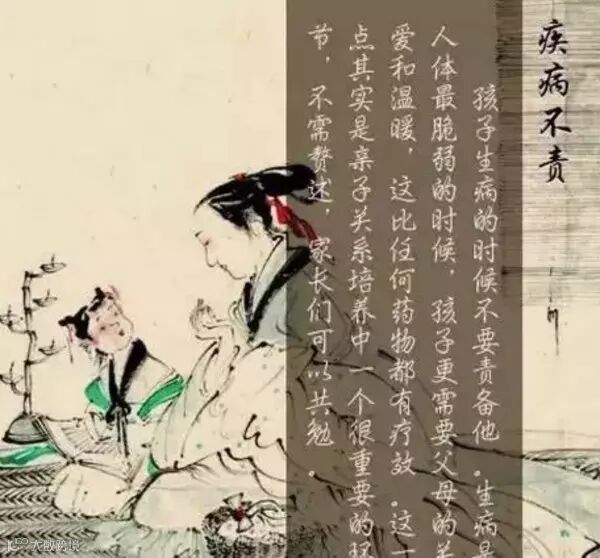 疾病不责
孩子生病的时候不要责备他.生病是
人体最脆弱的时候,孩子更需要父母的关
爱和温暖,这比任何药物都有疗效.这一
点其实是亲子关系培养中一个很重要的环
节,不需赘述,家长们可以共勉.
大数跨境